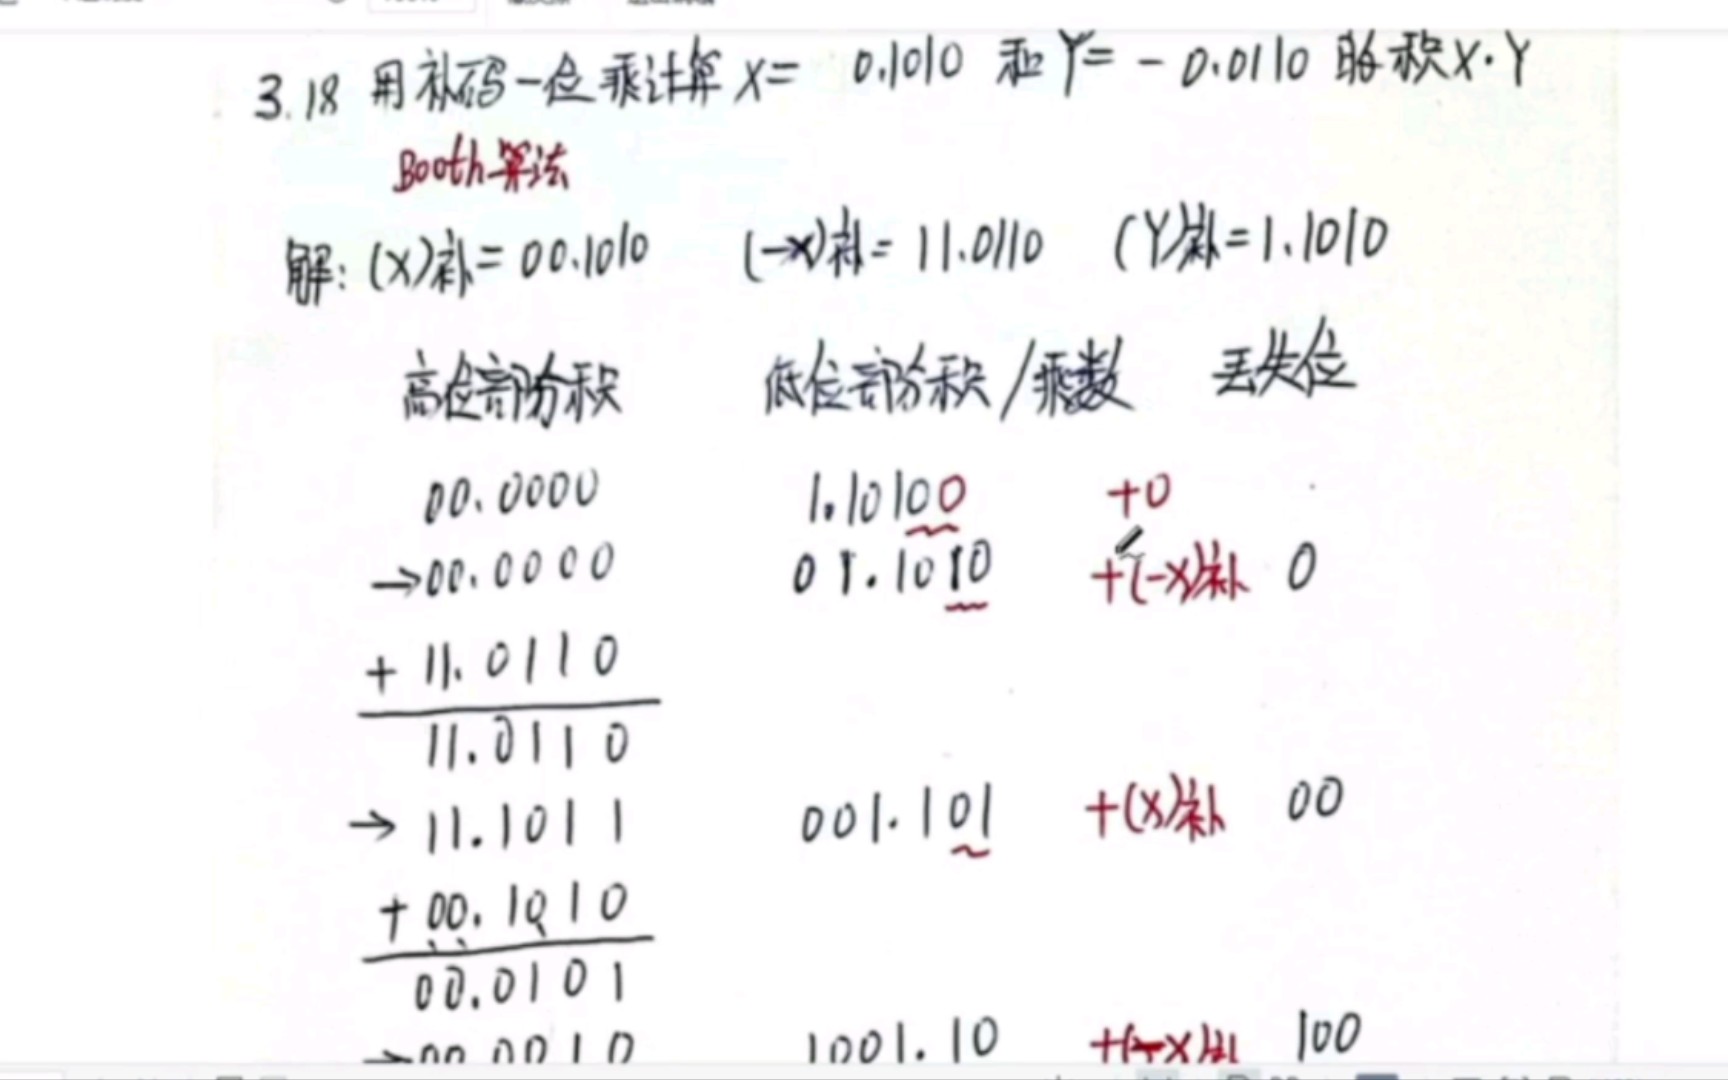 3.18 用补码一位乘计算 X= 0.1010 和 Y= -0.0110 的积X·Y
Booth算法
解: (X)补=00.1010 (-X)补=11.0110 (Y)补=1.1010
高位部分积 低位部分积/乘数 丢失位
00.0000 1.10100 +0
→00.0000 01.1010 +(-X)补 0
+ 11.0110
11.0110
→ 11.1011 001.101 +(X)补 00
+ 00.1010
00.0101
→00.0010 1001.10 +(-X)补 100